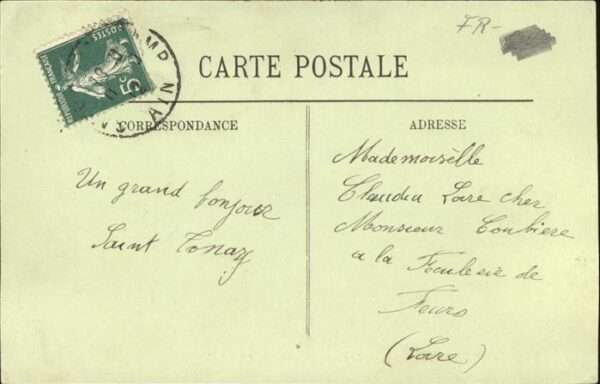 FR-
POSTES
5c
AIN
CARTE POSTALE
CORRESPONDANCE
ADRESSE
Un grand bonjour
Saint
Mademoiselle
Claudia Loire cher
Monsieur Coubiere
a la de
Feurs
(Loire)